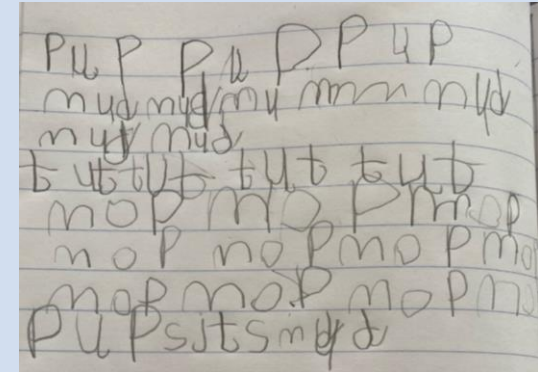 pup pup pup
mud mud mu mnn mud
mud mud
t ut tut tut tut
mop mo p mop
mop mop mop mo
mop mop mop m
pup sits mud